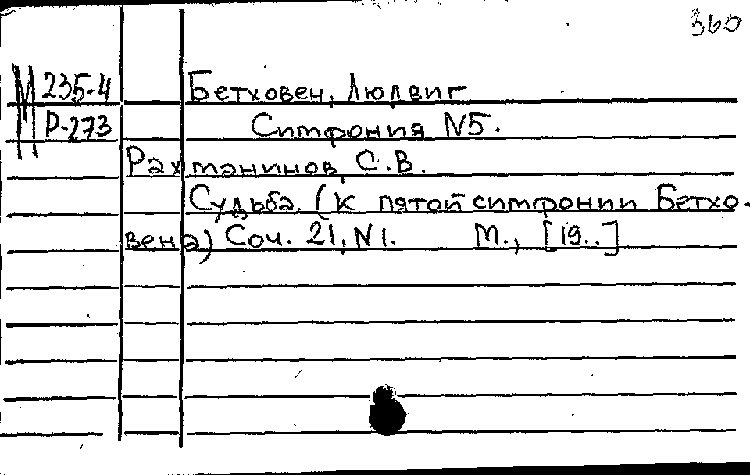 360
М 235-4 Бетховен, Людвиг
Р-273 Симфония N5.
Рахманинов, С.В.
Судьба. (К пятой симфонии Бетхо-
вена) Соч. 21, N1. М., [19..]